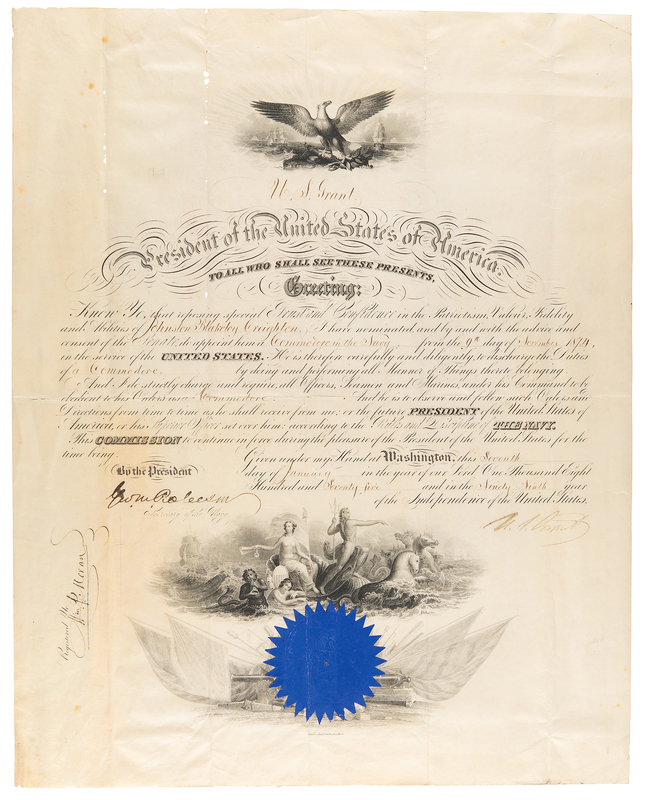 U. S. Grant
President of the United States of America.
TO ALL WHO SHALL SEE THESE PRESENTS,
Greeting:
Know Ye, that reposing special Trust and Confidence in the Patriotism, Valour, Fidelity
and Abilities of Johnston Blakeley Creighton, I have nominated, and by and with the advice and
consent of the Senate, do appoint him a Commodore in the Navy from the 9th day of November 1874,
in the service of the UNITED STATES. He is therefore carefully and diligently to discharge the Duties
of a Commodore by doing and performing all Manner of Things thereto belonging.
And I do strictly charge and require, all Officers, Seamen and Marines, under his Command to be
obedient to his Orders as a Commodore And he is to observe and follow such Orders and
Directions from time to time as he shall receive from me, or the future PRESIDENT of the United States of
America, or his Superior Officer set over him, according to the Rules and Discipline of THE NAVY.
This COMMISSION to continue in force during the pleasure of the President of the United States, for the
time being.
Given under my Hand at Washington, this Seventh
day of January in the year of our Lord One Thousand Eight
Hundred and Seventy five and in the Ninety Ninth year
of the Independence of the United States.
By the President
Geo. M. Robeson
Secretary of the Navy
U. S. Grant
Registered No.
Wm. P. Moran